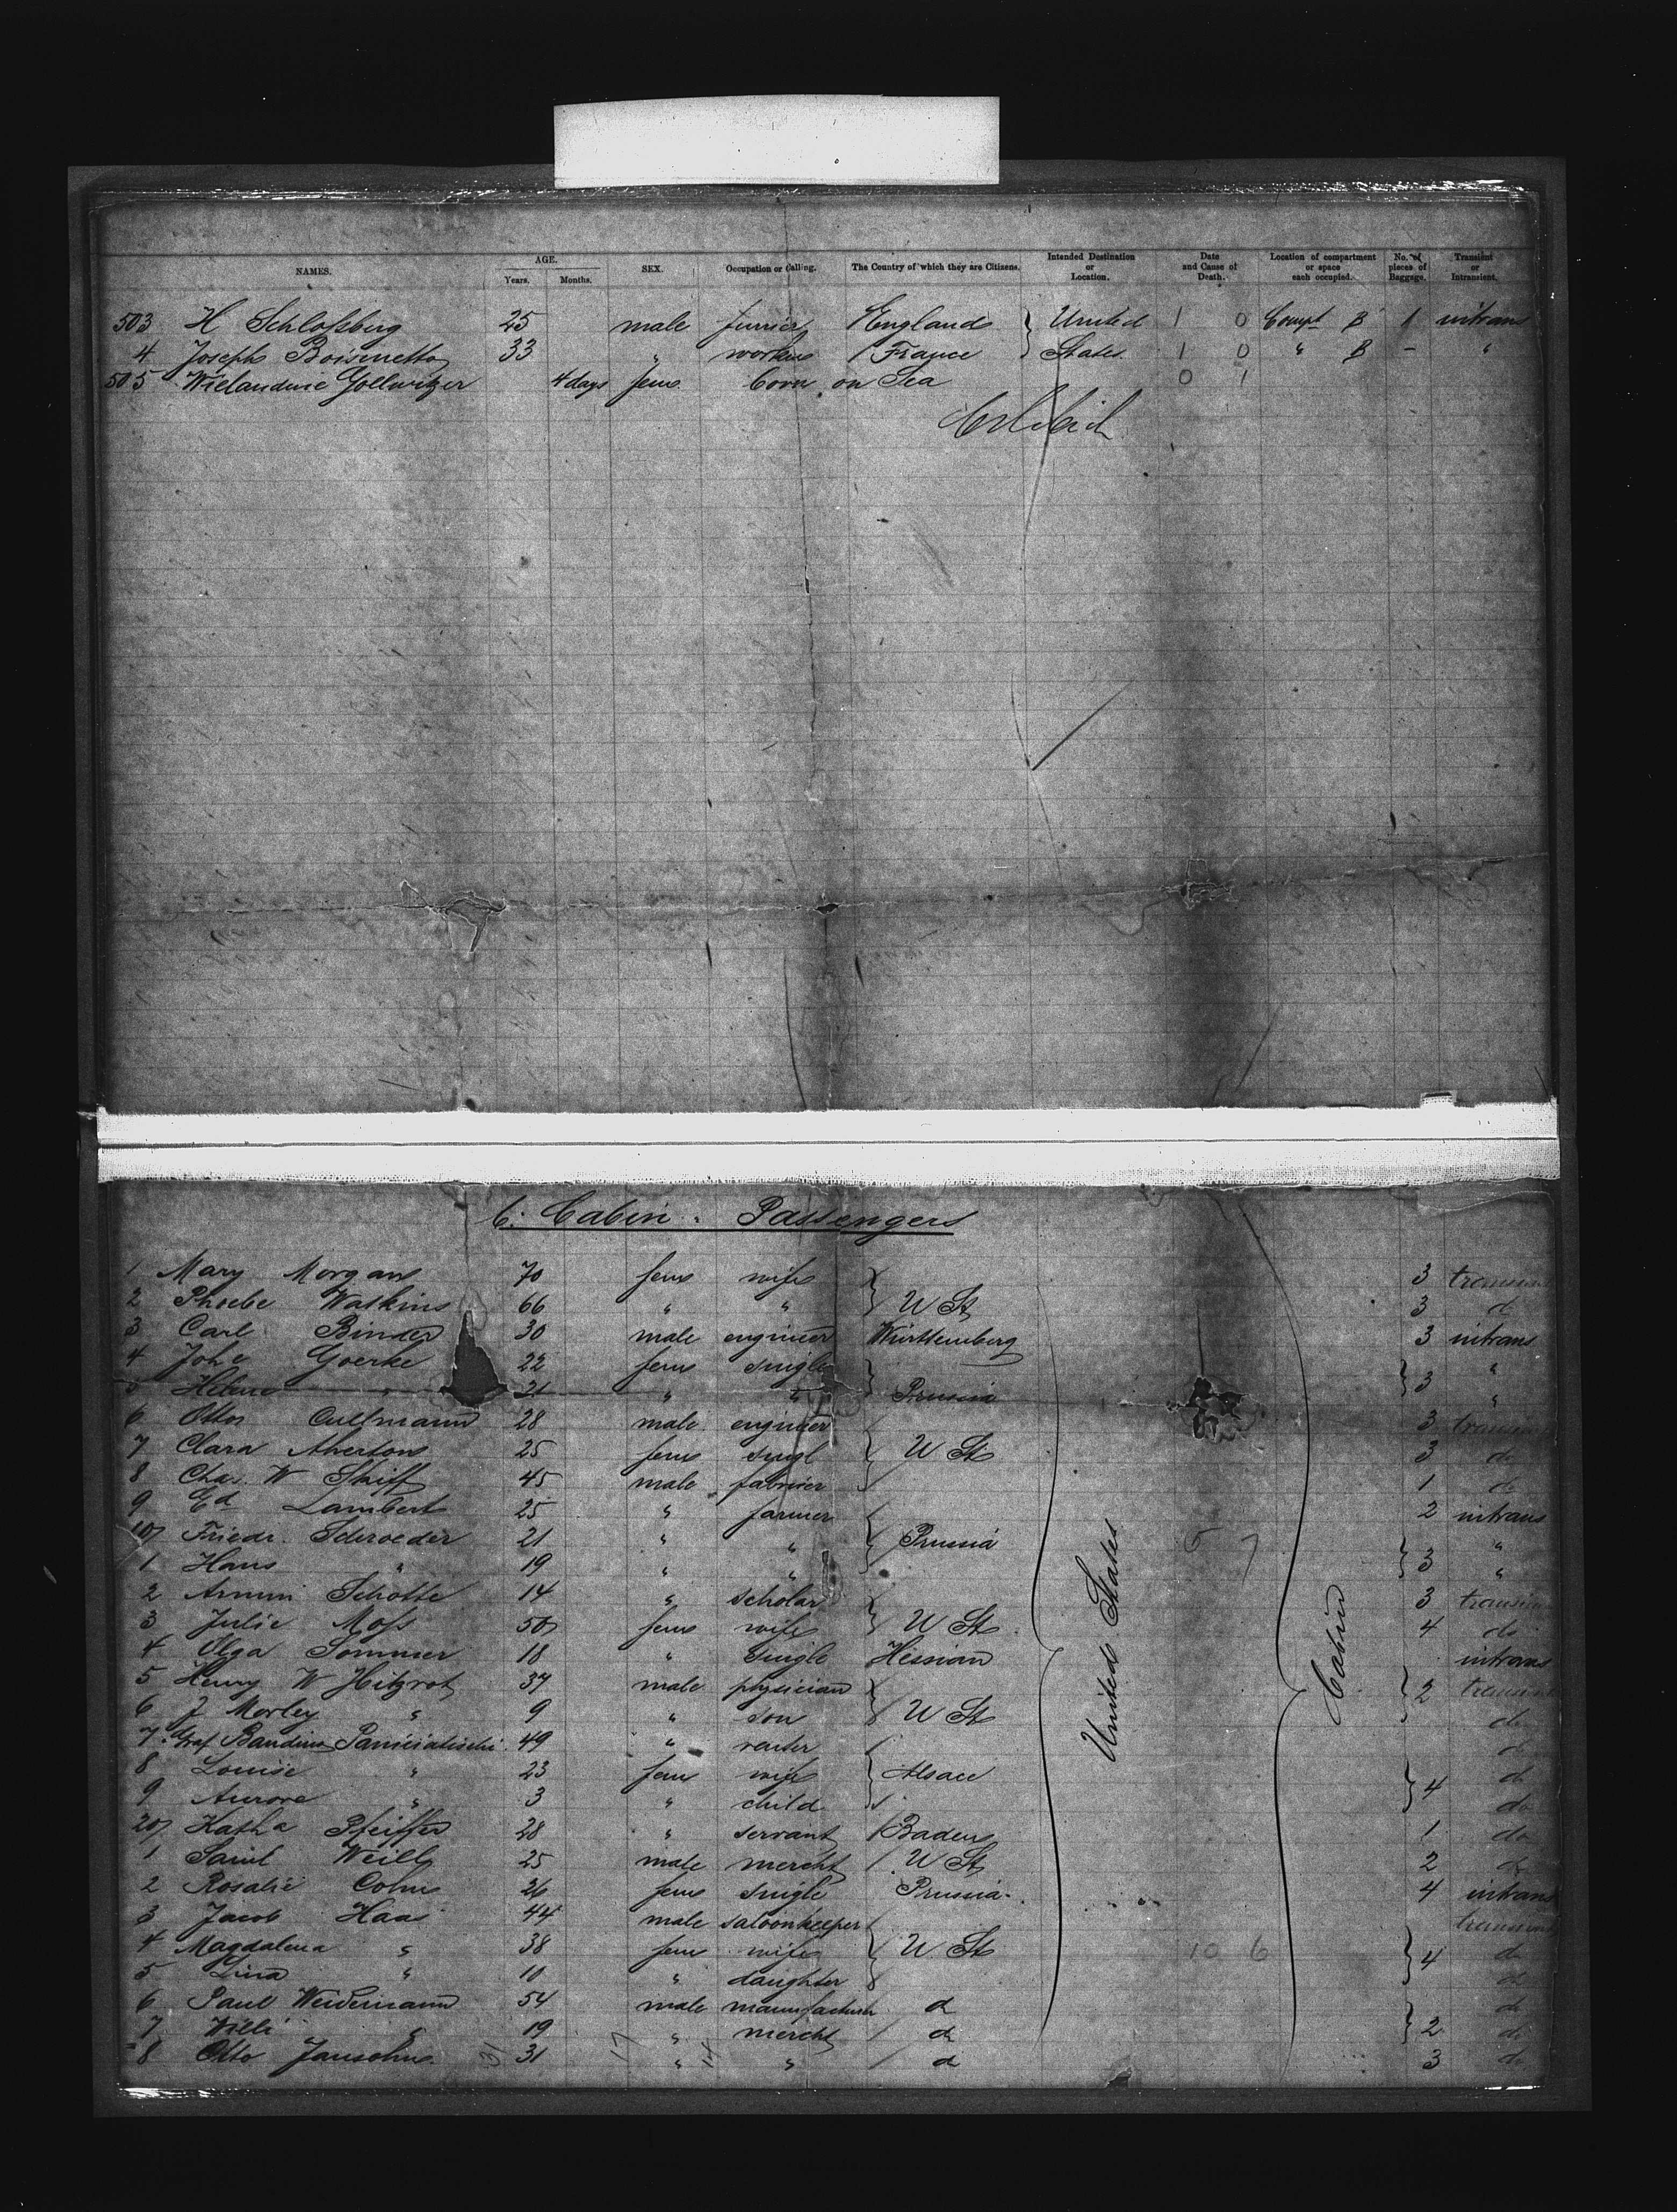 NAMES. AGE. Years. Months. SEX. Occupation or Calling. The Country of which they are Citizens. Intended Destination or Location. Date and Cause of Death. Location of compartment or space each occupied. No. of pieces of Baggage. Transient or Intransient.
503 H Schloßberg 25 male furrier England } United 1 0 Compt B 1 intrans
4 Joseph Boisenetto 33 " worker France } States 1 0 " B - "
505 4 days fem. born on Sea 0 1
C. Cabin - Passengers
1 Mary Morgan 70 fem wife 3 transient
2 Phoebe Watkins 66 " " } U St 3 do
3 Carl Binder 30 male engineer Württemberg 3 intrans
4 Johe Goerke 22 fem single "
5 Helene " 21 " " } Prussia } 3 "
6 Otto Cullmann 28 male engineer 3 transient
7 Clara 25 fem singl { U St 3 do
8 Chas. W Skiff 45 male 1 do
9 Ed Lambert 25 " farmer 2 intrans
10 Friedr. Schroeder 21 " " { Prussia 5 7 "
1 Hans " 19 " " } 3 "
2 Armin Schotte 14 " scholar 3 transient
3 Julie Moſs 50 fem wife } U St 4 do
4 Olga Sommer 18 " single Hessian intrans
5 Henry W Hitzrot 37 male physician } 2 transient
6 J Morley " 9 " son U St do
7 Graf Bandino 49 " renter do
8 Louise " 23 fem wife } Alsace do
9 Aurore " 3 " child } 4 do
20 Katha Pfeiffer 28 " servant Baden 1 do
1 Saml Weill 25 male mercht U St 2 do
2 Rosalie Cohn 26 fem single Prussia 4 intrans
3 Jacob Haas 44 male saloonkeeper transient
4 Magdalena " 38 fem wife { U St 10 6 } 4 do
5 Lina " 10 " daughter do
6 Paul Weidemann 54 male manufacturer do do
7 Willi " 19 " mercht do } 2 do
8 Otto Jansohn 31 31 17 " 14 " do 3 do
United States
Cabin